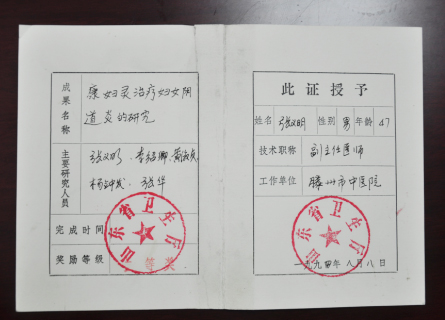 成果名称
康妇灵治疗妇女阴
道炎的研究
主要研究人员
张汉明、李绍卿、
杨钟发、张华
完成时间
奖励等级
等奖
山东省卫生厅
此证授予
姓名 张汉明 性别 男 年龄 47
技术职称 副主任医师
工作单位 滕州市中医院
山东省卫生厅
一九九四年八月八日